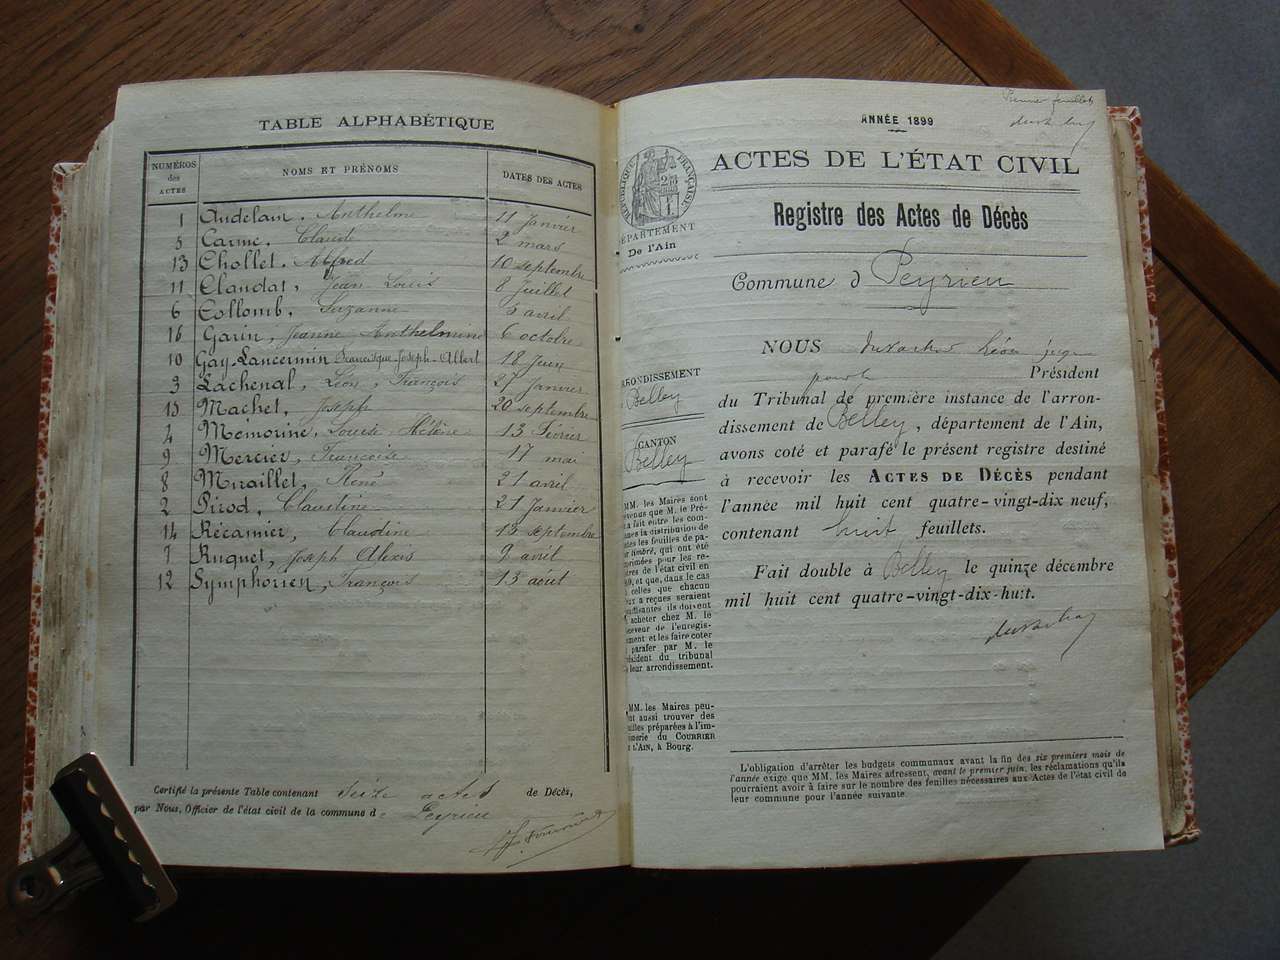 TABLE ALPHABÉTIQUE
NUMÉROS des ACTES NOMS ET PRÉNOMS DATES DES ACTES
1 Andelan, Anthelme 11 Janvier
5 Carme, Claude 2 mars
13 Chollet, Alfred 10 septembre
11 Claudat, Jean Louis 8 Juillet
6 Collomb, Suzanne avril
16 Garin, Jeanne Anthelmine 6 octobre
10 Gay-Lancermin Francisque-Joseph-Albert 18 Juin
3 Lachenal, Léon, François 27 Janvier
15 Machet, Joseph 20 septembre
4 Mémorine, Louise Hélène 13 Février
9 Mercier, Françoise 17 mai
8 Miraillet, René 21 avril
2 Pirod, Claudine 21 Janvier
14 Récamier, Claudine 13 septembre
7 Ruquet, Joseph Alexis 9 avril
12 Symphorien, François 13 août
Certifié la présente Table contenant seize actes de Décès,
par Nous, Officier de l'état civil de la commune de Peyrieu
Premier feuillet
ANNÉE 1899
ACTES DE L'ÉTAT CIVIL
RÉPUBLIQUE FRANÇAISE
DÉPARTEMENT
De l'Ain
Registre des Actes de Décès
Commune d Peyrieu
NOUS Léon juge
Président
du Tribunal de première instance de l'arron-
dissement de Belley, département de l'Ain,
avons coté et parafé le présent registre destiné
à recevoir les ACTES DE DÉCÈS pendant
l'année mil huit cent quatre-vingt-dix neuf,
contenant huit feuillets.
Fait double à Belley le quinze décembre
mil huit cent quatre-vingt-dix-huit.
ARRONDISSEMENT
Belley
CANTON
Belley
MM. les Maires sont
venus que M. le Pré-
a fait entre les com-
mes la distribution de
tes les feuilles de pa-
timbré, qui ont été
primées pour les re-
res de l'état civil en
et que, dans le cas
celles que chacun
x a reçues seraient
ffisantes ils doivent
acheter chez M. le
ceveur de l'enregis-
ement et les faire coter
parafer par M. le
ésident du tribunal
leur arrondissement.
MM. les Maires peu-
nt aussi trouver des
uilles préparées à l'im-
merie du COURRIER
L'AIN, à Bourg.
L'obligation d'arrêter les budgets communaux avant la fin des six premiers mois de
l'année exige que MM. les Maires adressent, avant le premier juin, les réclamations qu'ils
pourraient avoir à faire sur le nombre des feuilles nécessaires aux Actes de l'état civil de
leur commune pour l'année suivante.